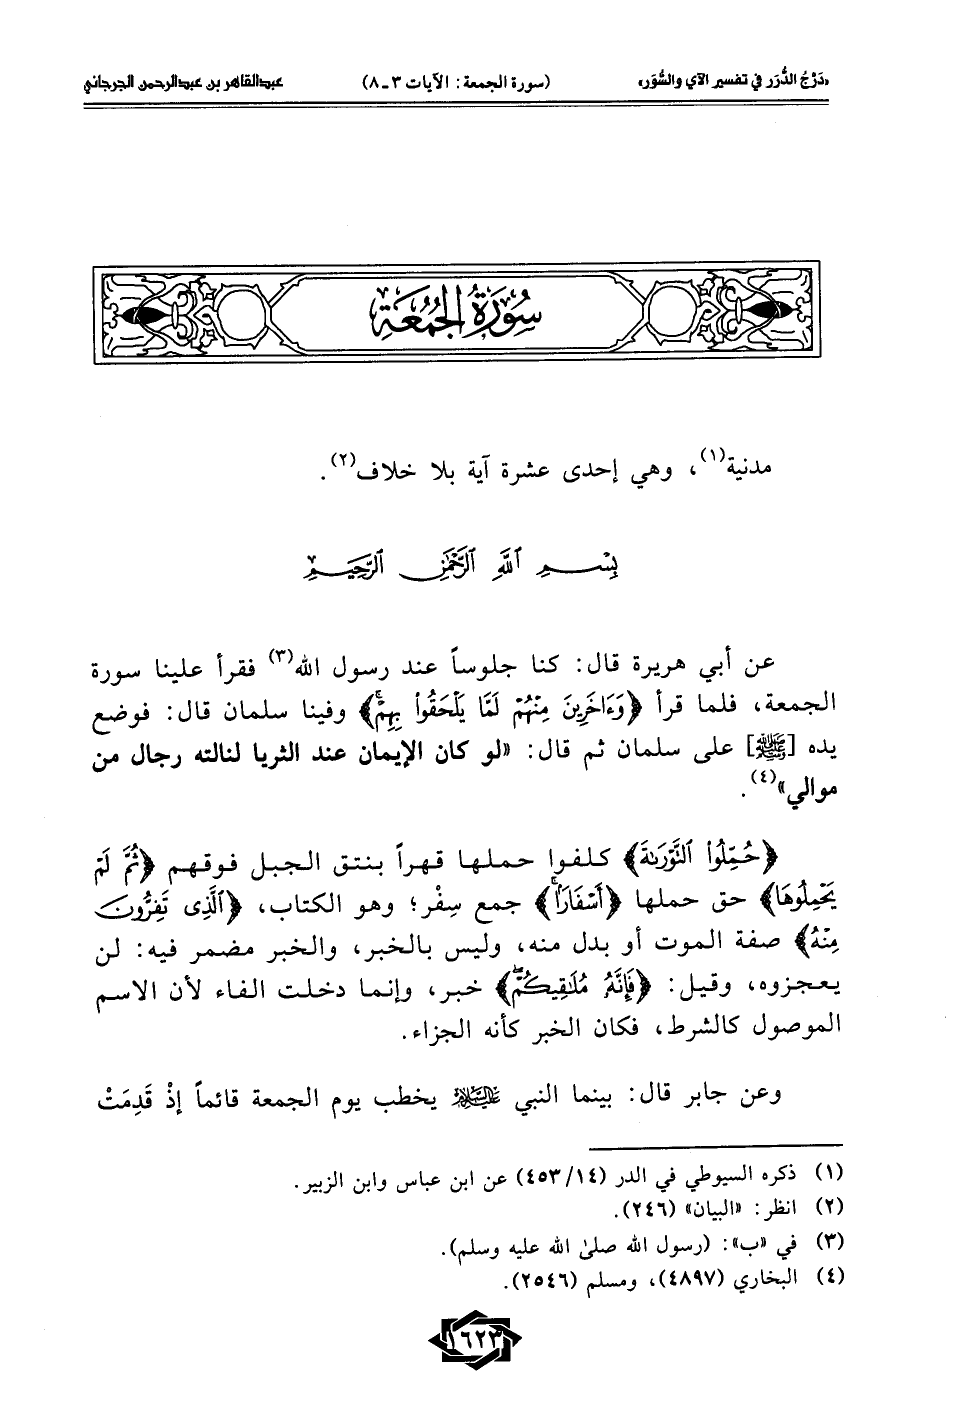 «دَرْجُ الدُّرَر في تفسير الآي والسُّوَر» (سورة الجمعة: الآيات ٣ـ٨) عبدالقاهر بن عبدالرحمن الجرجاني
سُورَةُ الجُمُعَة
مدنية(١)، وهي إحدى عشرة آية بلا خلاف(٢).
بِسْمِ ٱللَّهِ ٱلرَّحْمَٰنِ ٱلرَّحِيمِ
عن أبي هريرة قال: كنا جلوساً عند رسول الله(٣) فقرأ علينا سورة
الجمعة، فلما قرأ ﴿وَءَاخَرِينَ مِنْهُمْ لَمَّا يَلْحَقُوا۟ بِهِمْۚ﴾ وفينا سلمان قال: فوضع
يده [ﷺ] على سلمان ثم قال: «لو كان الإيمان عند الثريا لنالته رجال من
موالي»(٤).
﴿حُمِّلُوا۟ ٱلتَّوْرَىٰةَ﴾ كلفوا حملها قهراً بنتق الجبل فوقهم ﴿ثُمَّ لَمْ
يَحْمِلُوهَا﴾ حق حملها ﴿أَسْفَارًاۚ﴾ جمع سِفْر؛ وهو الكتاب، ﴿ٱلَّذِى تَفِرُّونَ
مِنْهُ﴾ صفة الموت أو بدل منه، وليس بالخبر، والخبر مضمر فيه: لن
يعجزوه، وقيل: ﴿فَإِنَّهُۥ مُلَٰقِيكُمْۖ﴾ خبر، وإنما دخلت الفاء لأن الاسم
الموصول كالشرط، فكان الخبر كأنه الجزاء.
وعن جابر قال: بينما النبي عليه السلام يخطب يوم الجمعة قائماً إذْ قَدِمَتْ
(١) ذكره السيوطي في الدر (١٤/ ٤٥٣) عن ابن عباس وابن الزبير.
(٢) انظر: «البيان» (٢٤٦).
(٣) في «ب»: (رسول الله صلىٰ الله عليه وسلم).
(٤) البخاري (٤٨٩٧)، ومسلم (٢٥٤٦).
١٦٢٣